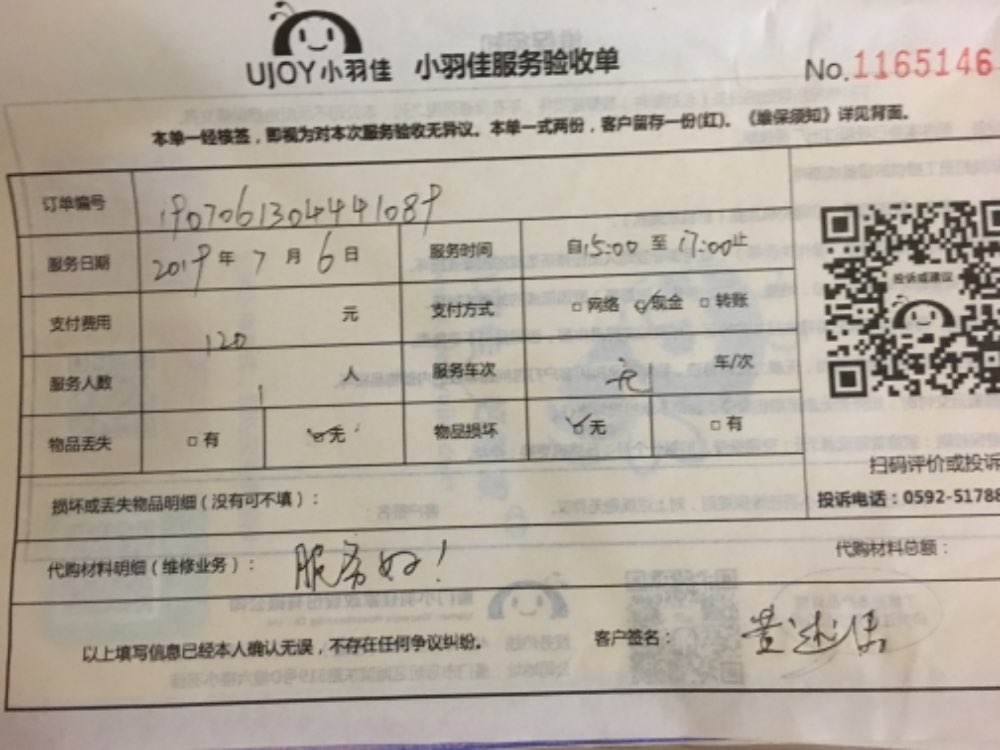 UJOY小羽佳 小羽佳服务验收单 No.1165146
本单一经核签，即视为对本次服务验收无异议。本单一式两份，客户留存一份(红)。《维保须知》详见背面。
订单编号 1907061304441089
服务日期 2019年7月6日 服务时间 自15:00至17:00止
支付费用 120 元 支付方式 □网络 ☑现金 □转账
投诉或建议
服务人数 1 人 服务车次 无 车/次
物品丢失 □有 ☑无 物品损坏 ☑无 □有
扫码评价或投诉
损坏或丢失物品明细（没有可不填）： 投诉电话：0592-51788
代购材料明细（维修业务）： 服务好！ 代购材料总额：
以上填写信息已经本人确认无误，不存在任何争议纠纷。 客户签名： 黄